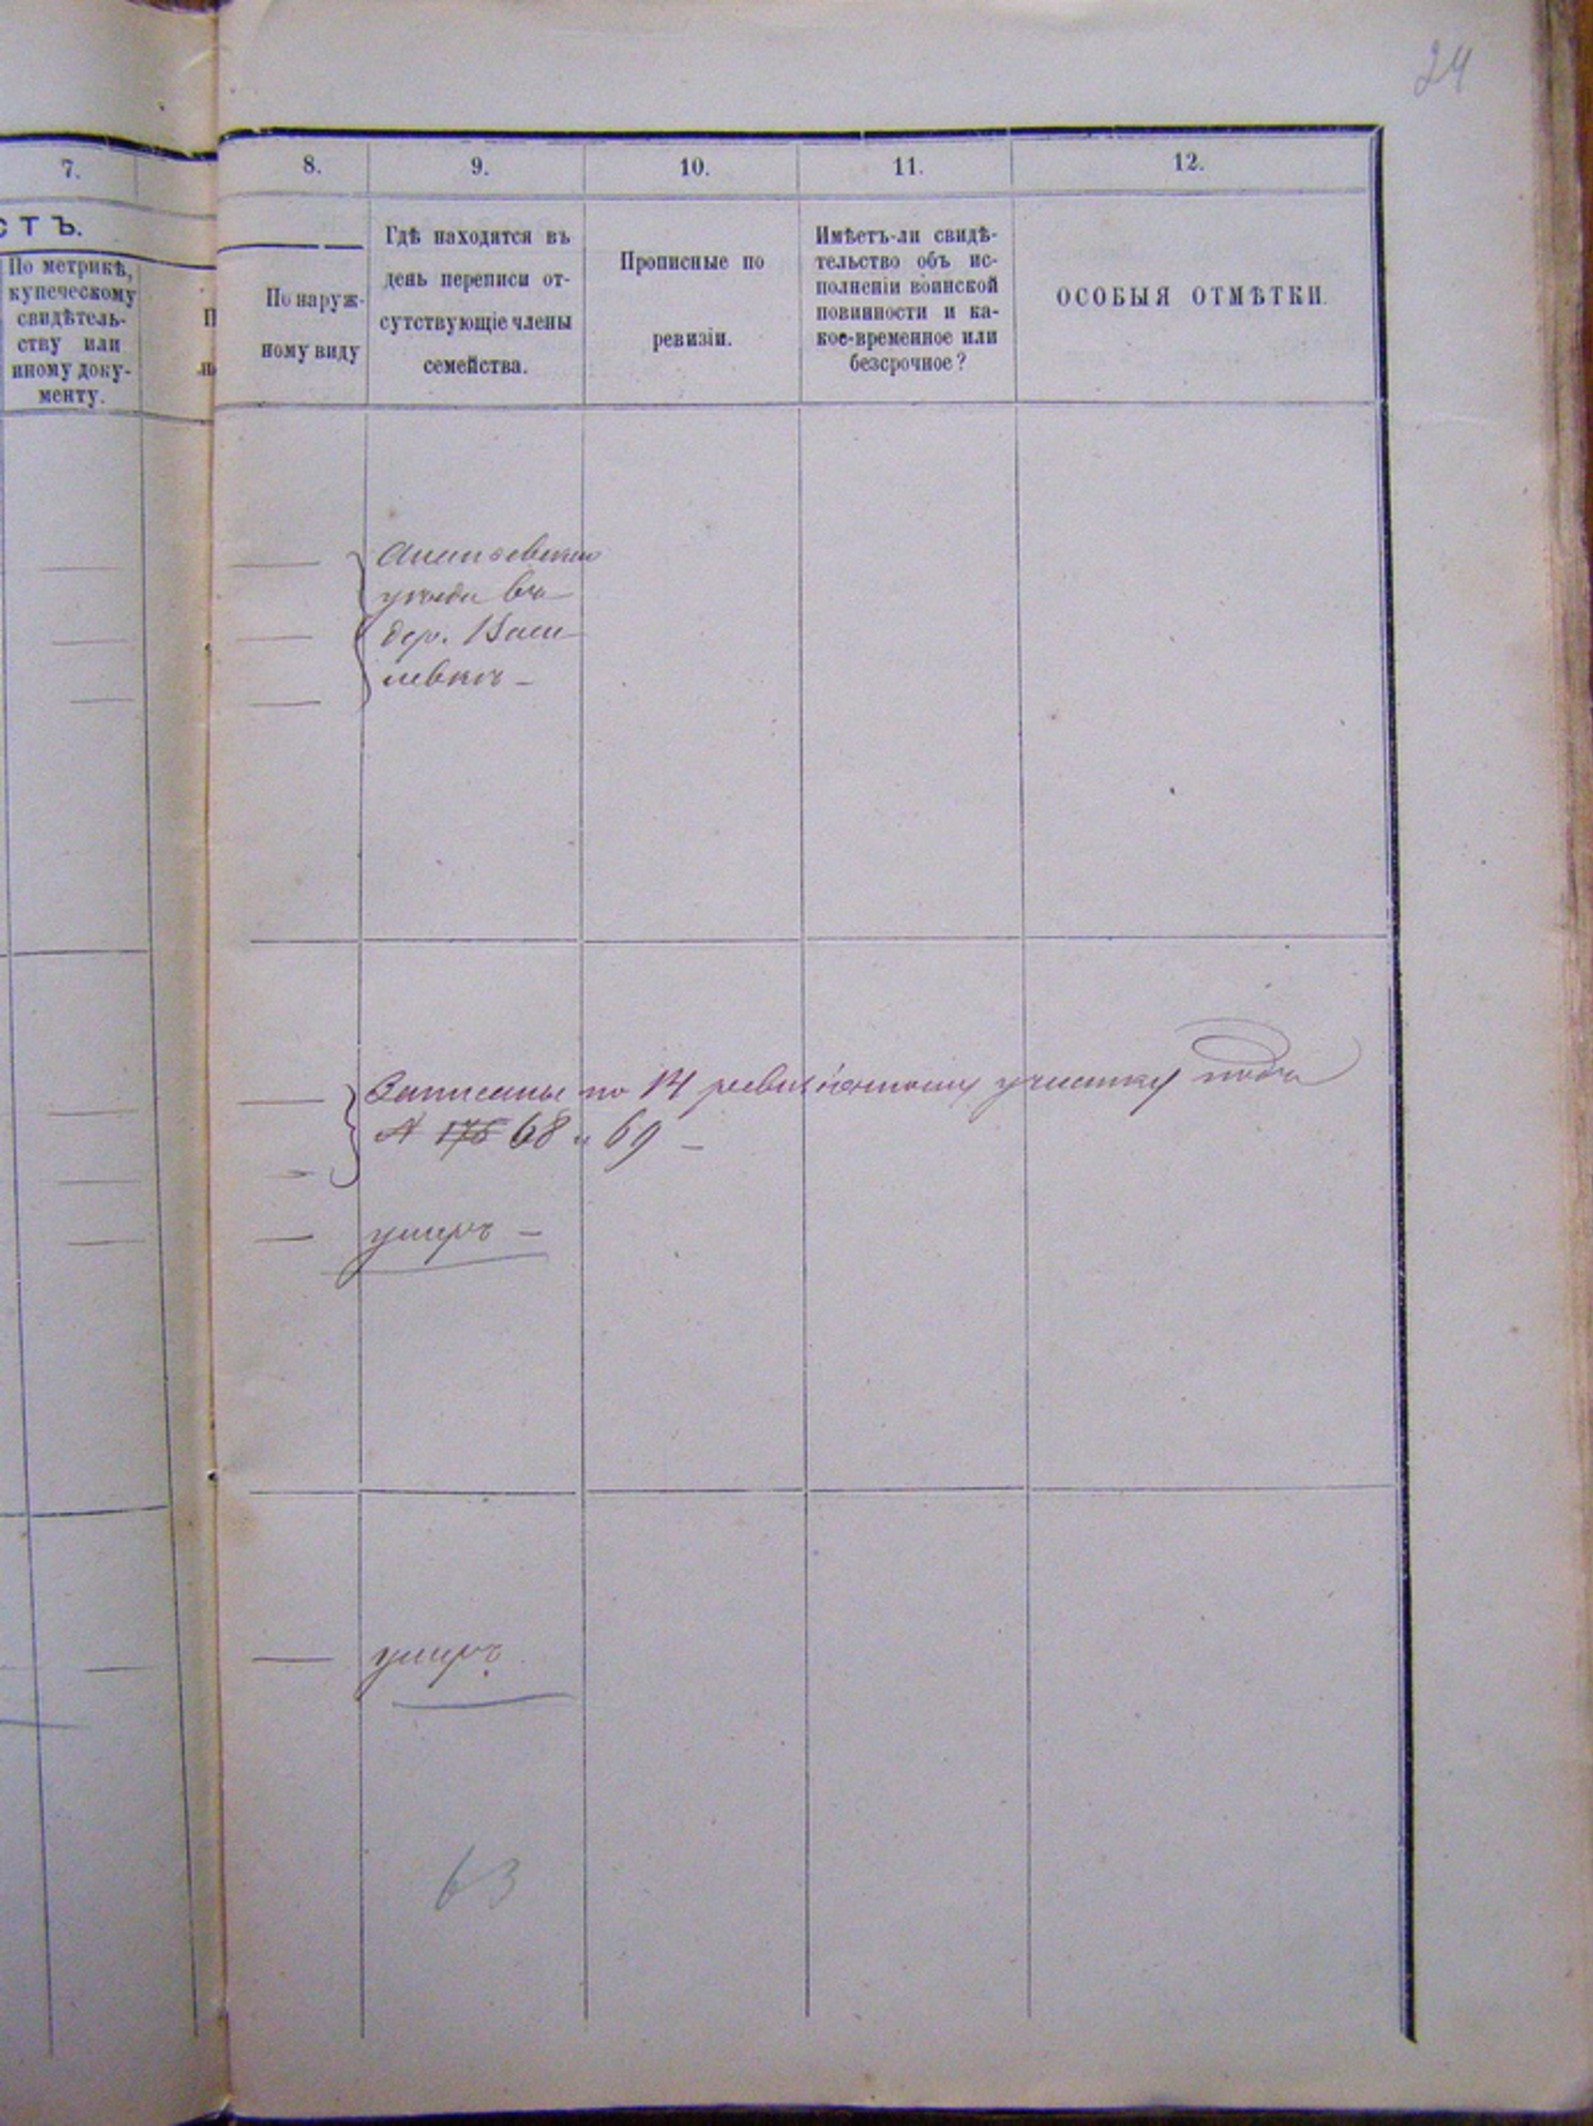 24
7.
8.
9.
10.
11.
12.
СТЪ.
По метрикѣ,
купеческому
свидѣтель-
ству или
иному доку-
менту.
По наруж-
ному виду
Гдѣ находятся въ
день переписи от-
сутствующіе члены
семейства.
Прописные по
ревизіи.
Имѣетъ-ли свидѣ-
тельство объ ис-
полненіи воинской
повинности и ка-
кое-временное или
безсрочное?
ОСОБЫЯ ОТМѢТКИ.
Ананьевскомъ
уѣздѣ въ
дер. Васи
левкѣ –
Записаны по 14 ревизіонному участку подъ
№ 175 68 и 69 –
умеръ –
умеръ
63